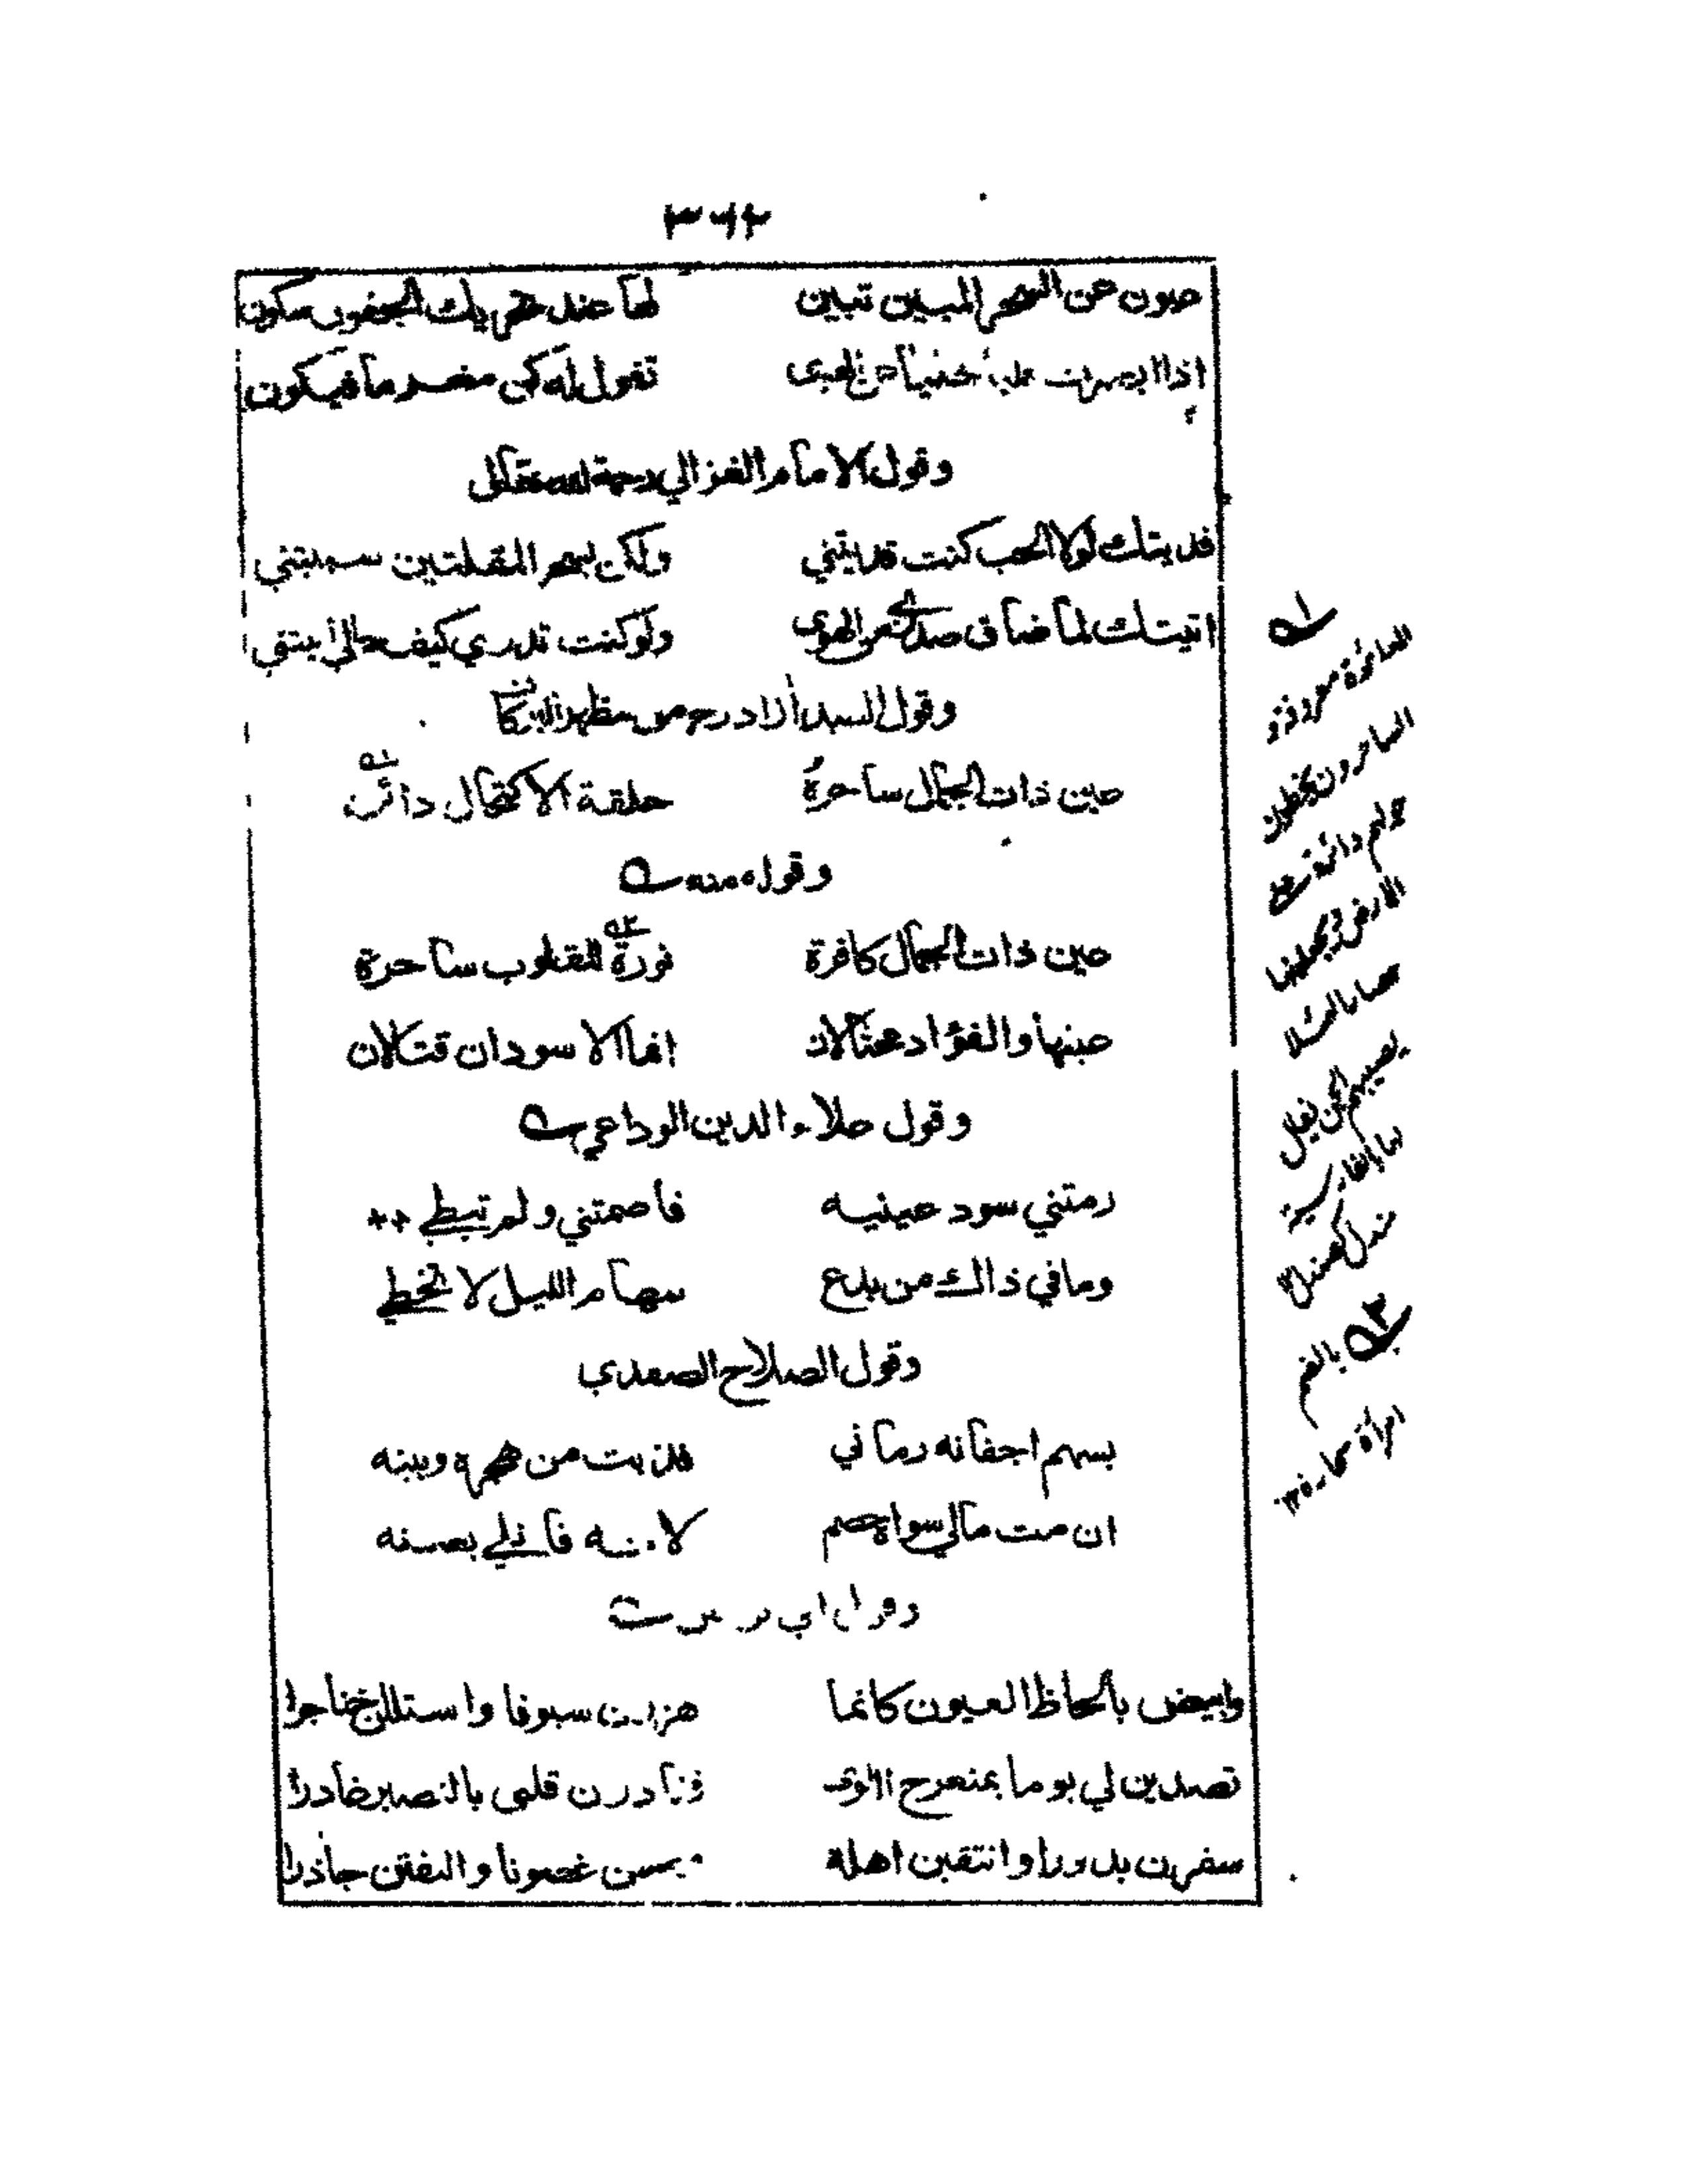 عيون عن السحر المبين تبين لها عند تحريك الجفون سكون
اذا ابصرت قلبا خليا من الهوى تقول له كن مغرما فيكون
وقول الامام الغزالي رحمة الله تعالى
فديتك لولا الحب كنت فديتني ولكن بسحر المقلتين سبيتني
اتيتك لما ضاق صدري من الهوى ولو كنت تدري كيف حالي اتيتني
وقول السيد أزاد رح من مظهر البركات
عين ذات الجمال ساحرة حلقة الاكتحال دائرة
وقوله منه
عين ذات الجمال كافرة نورة للقلوب ساحرة
عينها والفؤاد محتالان انما الاسودان قتالان
وقول علاء الدين الوداعي
رمتني سود عينيه فاصمتني ولم تبطي
وما في ذالك من بدع سهام الليل لا تخطي
وقول الصلاح الصفدي
بسهم اجفانه رماني فذبت من هجره وبينه
ان مت مالي سواه خصم لانه قاتلي بعينه
وقول ابي
وابيض بالحاظ العيون كانما هززن سيوفا واستللن خناجرا
تصدين لي يوما بمنعرج اللوى فغادرن قلبي بالتصبر غادرا
سفرن بدورا وانتقبن اهلة ومسن غصونا والتفتن جاذرا
١
الدائرة معروفة و
الساحرون يخطون
حولهم دائرة على
الارض
لئلا
يصيبهم
٢ بالضم
امرأة سحارة